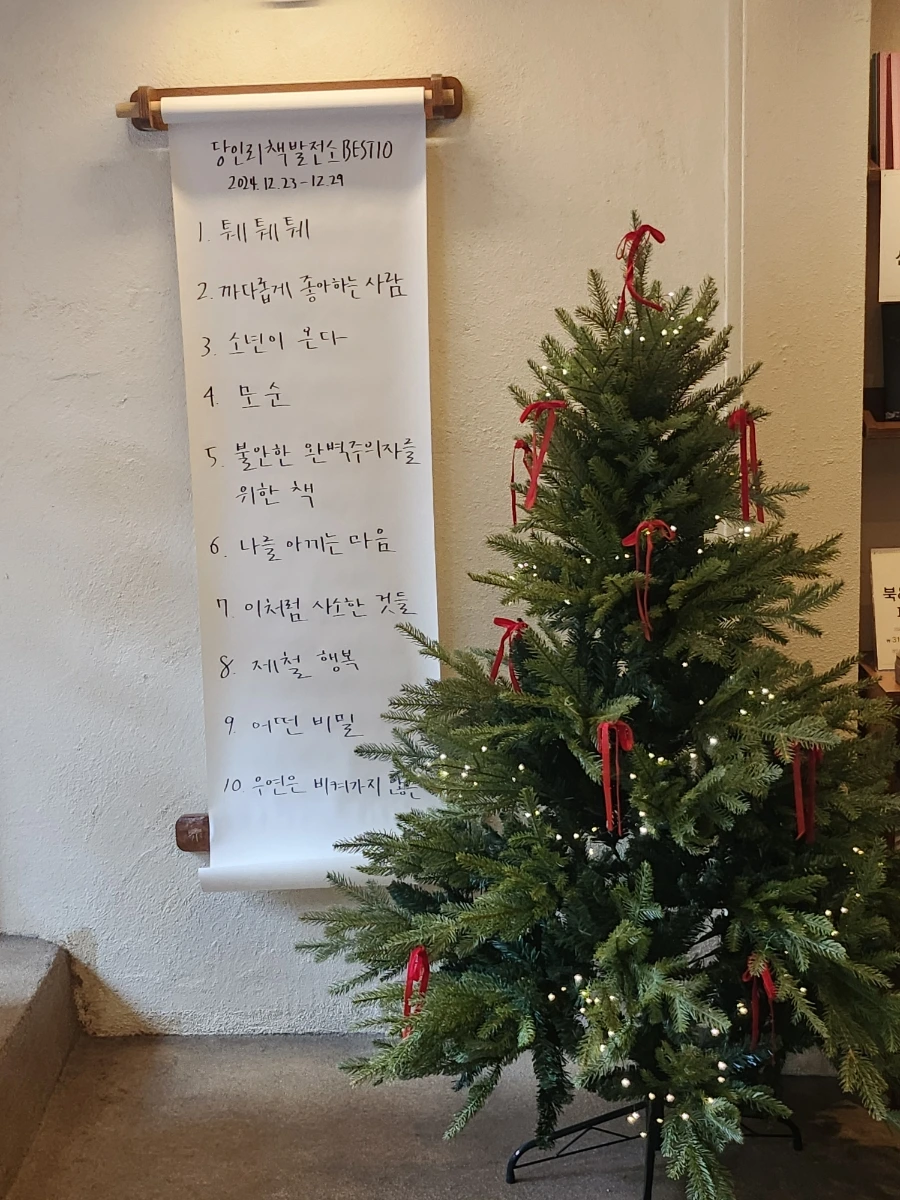 당인리책발전소 BEST10
2024.12.23-12.29
1. 퉤퉤퉤
2. 까다롭게 좋아하는 사람
3. 소년이 온다
4. 모순
5. 불안한 완벽주의자를
위한 책
6. 나를 아끼는 마음
7. 이처럼 사소한 것들
8. 제철 행복
9. 어떤 비밀
10 우연은 비켜가지 않는